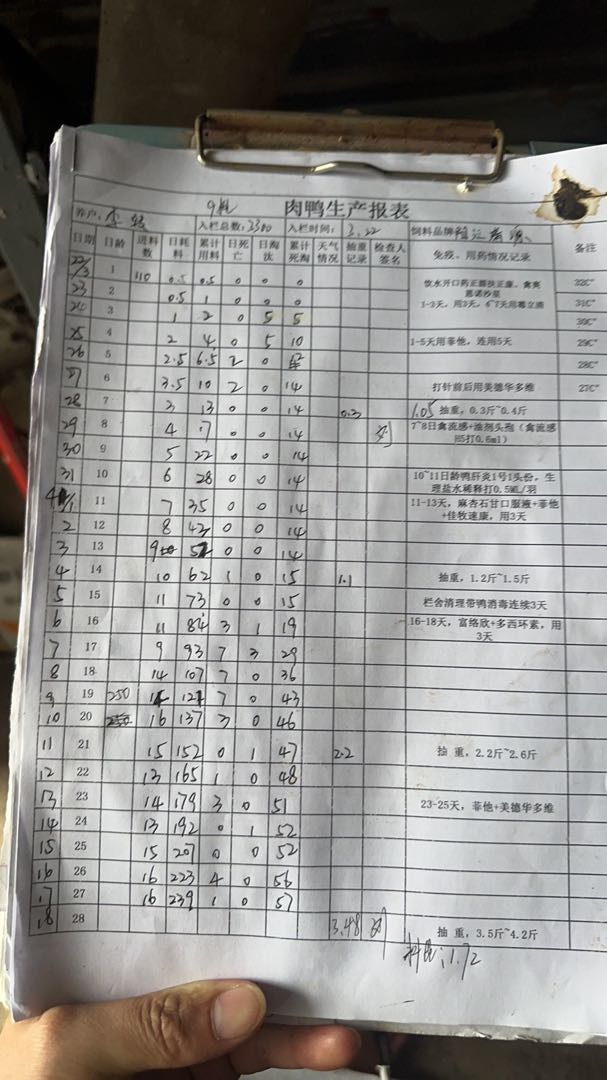 9批 肉鸭生产报表
养户: 李 入栏总数:2300 入栏时间: 3.22 饲料品牌
日期 日龄 进料数 日耗料 累计用料 日死亡 日淘汰 累计死淘 天气情况 抽重记录 检查人签名 免疫、用药情况记录 备注
22/3 1 110 0.5 0.5 0 0 0 32C°
23 2 0.5 1 0 0 0 1-3天,用3天,6~7天用霉立清 31C°
24 3 1 2 0 5 5 30C°
25 4 2 4 0 5 10 1-5天用菲他,连用5天 29C°
26 5 2.5 6.5 2 0 12 28C°
27 6 3.5 10 2 0 14 打针前后用美德华多维 27C°
28 7 3 13 0 0 14 0.3 1.05 抽重,0.3斤~0.4斤
29 8 4 17 0 0 14 刘 7~8日禽流感+油剂头孢(禽流感H5打0.6ml)
30 9 5 22 0 0 14
31 10 6 28 0 0 14 10~11日龄鸭肝炎1号1头份,生理盐水稀释打0.5ML/羽
4/1 11 7 35 0 0 14 11-13天,麻杏石甘口服液+菲他+佳牧速康,用3天
2 12 8 43 0 0 14
3 13 9 52 0 0 14
4 14 10 62 1 0 15 1.1 抽重,1.2斤~1.5斤
5 15 11 73 0 0 15 栏舍清理带鸭消毒连续3天
6 16 11 84 3 1 19 16-18天,富络欣+多西环素,用3天
7 17 9 93 7 3 29
8 18 14 107 7 0 36
9 19 250 14 121 7 0 43
10 20 16 137 3 0 46
11 21 15 152 0 1 47 2.2 抽 重,2.2斤~2.6斤
12 22 13 165 1 0 48
13 23 14 179 3 0 51 23-25天,菲他+美德华多维
14 24 13 192 0 1 52
15 25 15 207 0 0 52
16 26 16 223 4 0 56
17 27 16 239 1 0 57
18 28 3.48 刘 抽 重,3.5斤~4.2斤
料比:1.72